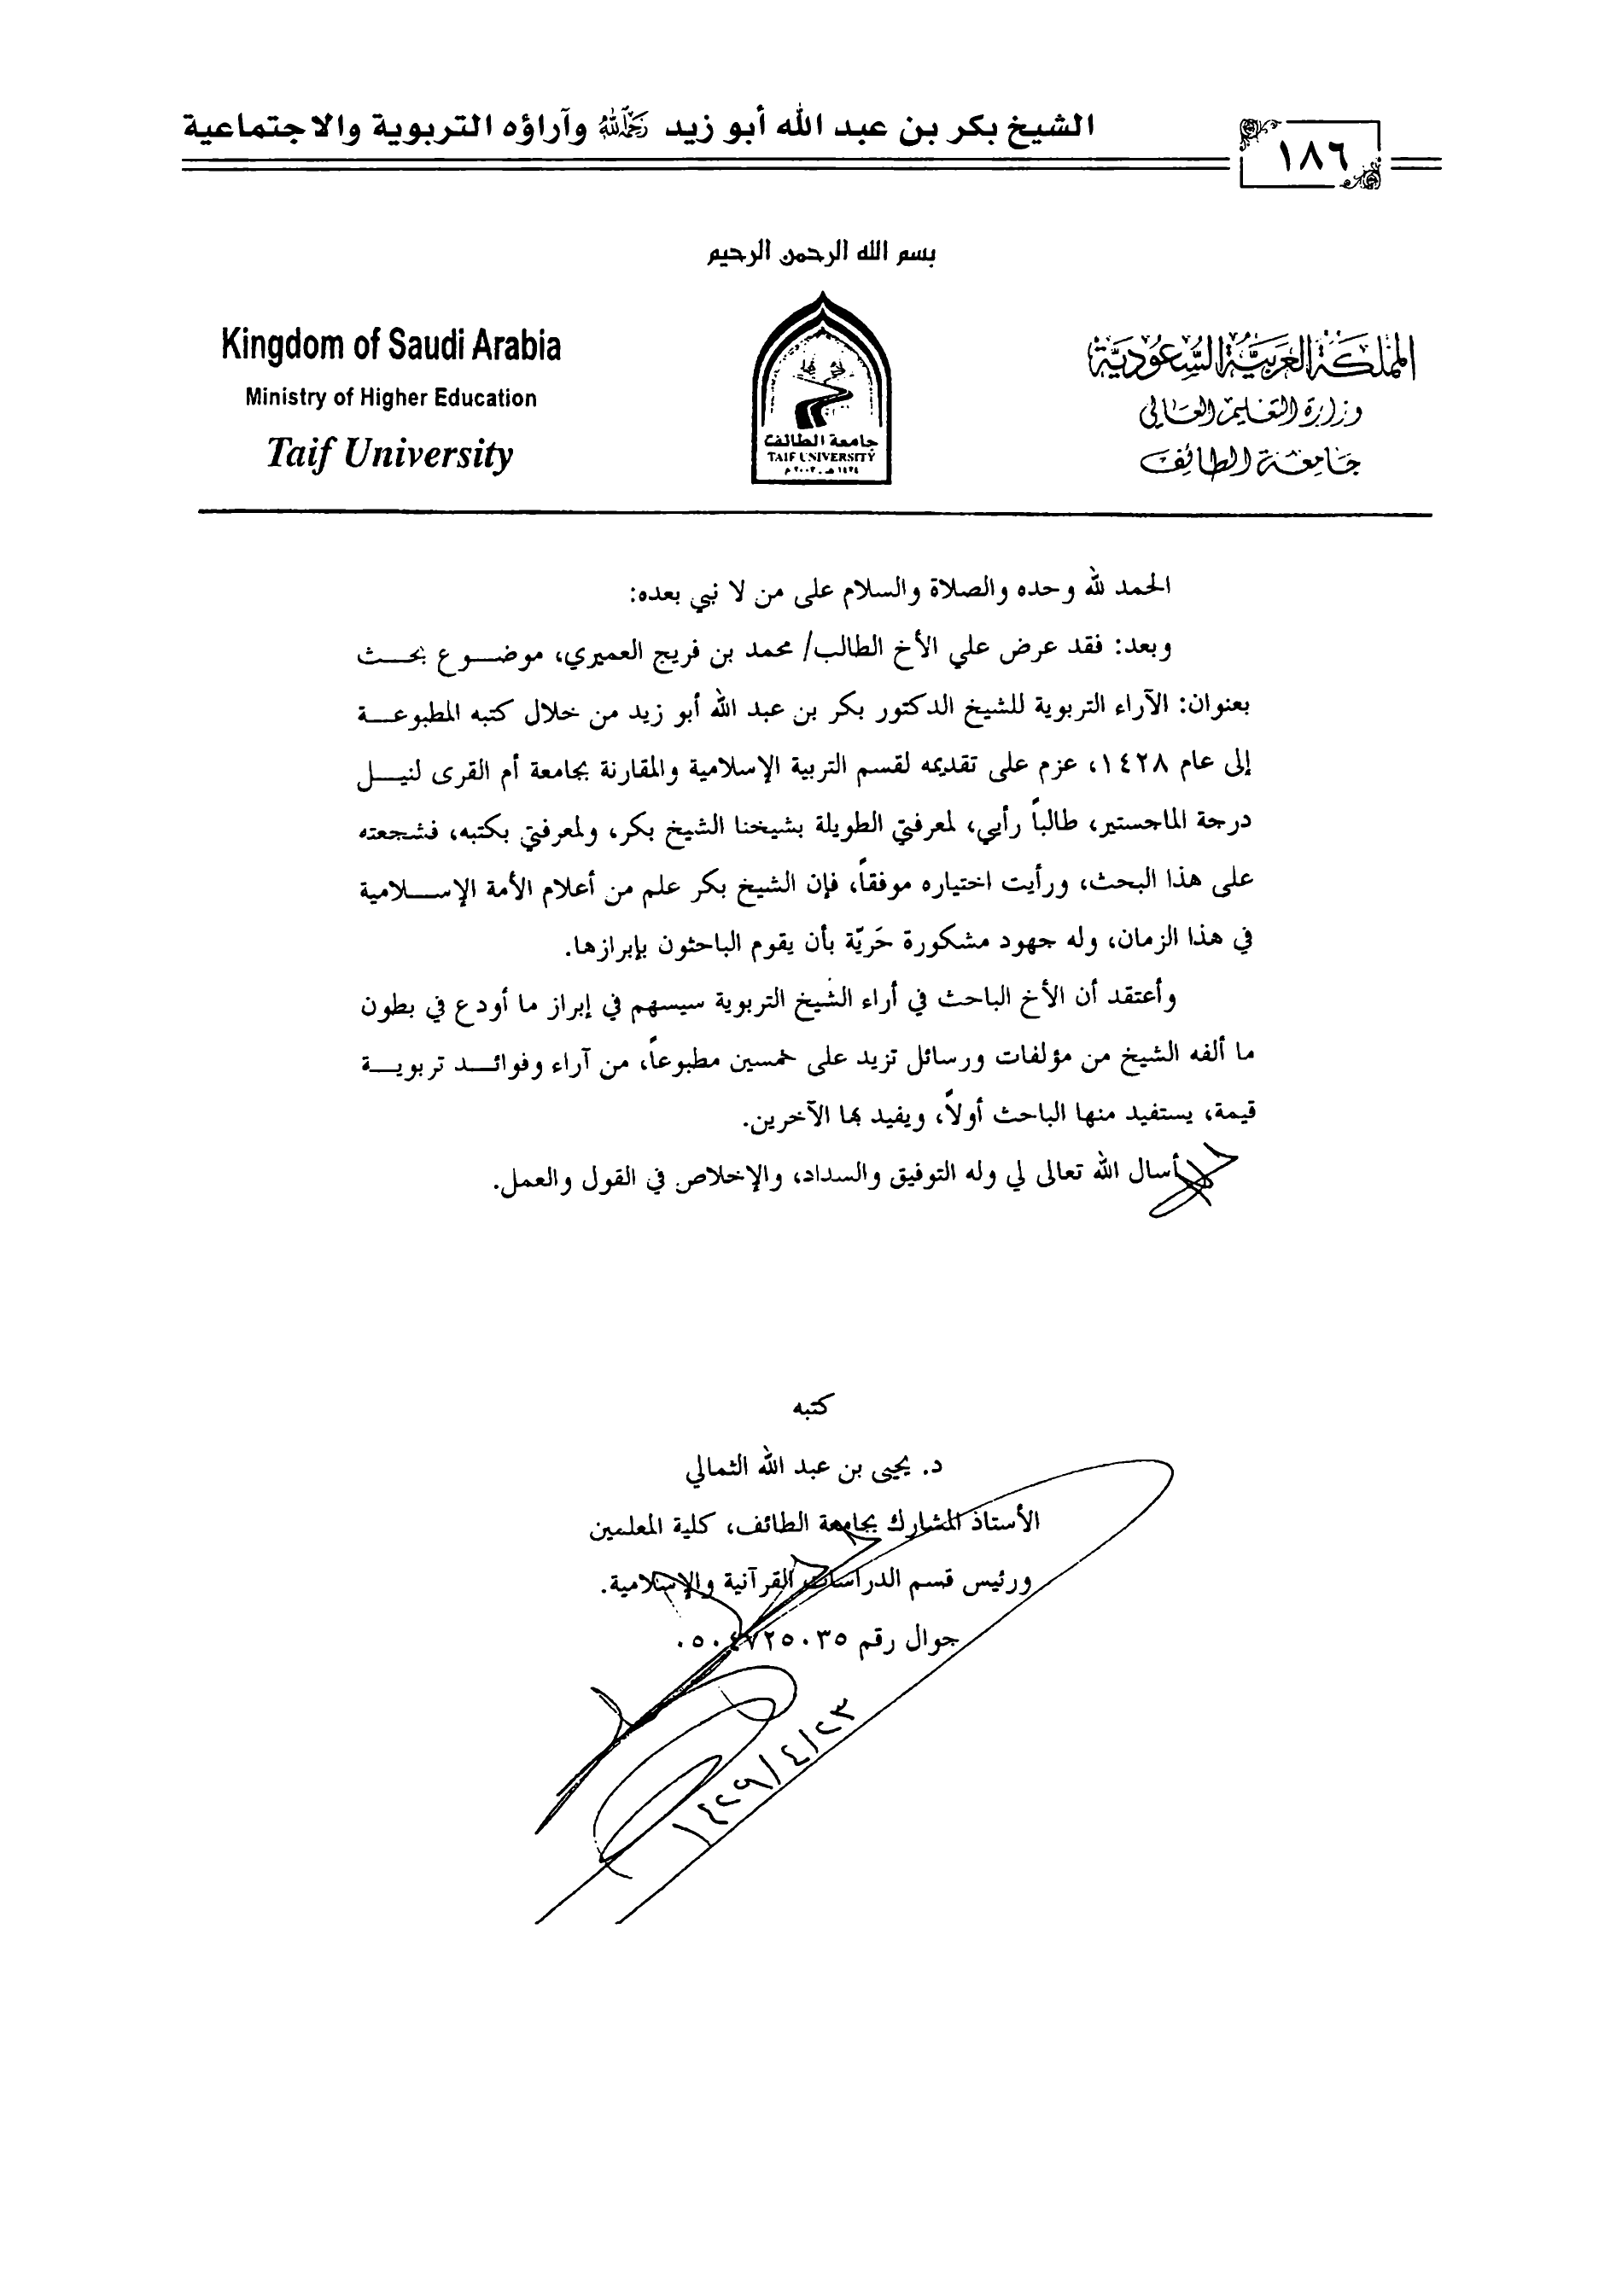 الشيخ بكر بن عبد الله أبو زيد رحمه الله وآراؤه التربوية والاجتماعية
١٨٦
بسم الله الرحمن الرحيم
المملكة العربية السعودية
وزارة التعليم العالي
جامعة الطائف
جامعة الطائف
TAIF UNIVERSITY
Kingdom of Saudi Arabia
Ministry of Higher Education
Taif University
الحمد لله وحده والصلاة والسلام على من لا نبي بعده:
وبعد: فقد عرض علي الأخ الطالب/ محمد بن فريج العميري، موضوع بحث
بعنوان: الآراء التربوية للشيخ الدكتور بكر بن عبد الله أبو زيد من خلال كتبه المطبوعة
إلى عام ١٤٢٨، عزم على تقديمه لقسم التربية الإسلامية والمقارنة بجامعة أم القرى لنيل
درجة الماجستير، طالباً رأيي، لمعرفتي الطويلة بشيخنا الشيخ بكر، ولمعرفتي بكتبه، فشجعته
على هذا البحث، ورأيت اختياره موفقاً، فإن الشيخ بكر علم من أعلام الأمة الإسلامية
في هذا الزمان، وله جهود مشكورة حَريّة بأن يقوم الباحثون بإبرازها.
وأعتقد أن الأخ الباحث في أراء الشيخ التربوية سيسهم في إبراز ما أودع في بطون
ما ألفه الشيخ من مؤلفات ورسائل تزيد على خمسين مطبوعاً، من آراء وفوائد تربوية
قيمة، يستفيد منها الباحث أولاً، ويفيد بها الآخرين.
أسال الله تعالى لي وله التوفيق والسداد، والإخلاص في القول والعمل.
كتبه
د. يحيى بن عبد الله الثمالي
الأستاذ المشارك بجامعة الطائف، كلية المعلمين
ورئيس قسم الدراسات القرآنية والإسلامية.
جوال رقم ٠٥٠٤٧٢٥٠٣٥
١٤٢٩/٤/٢٣